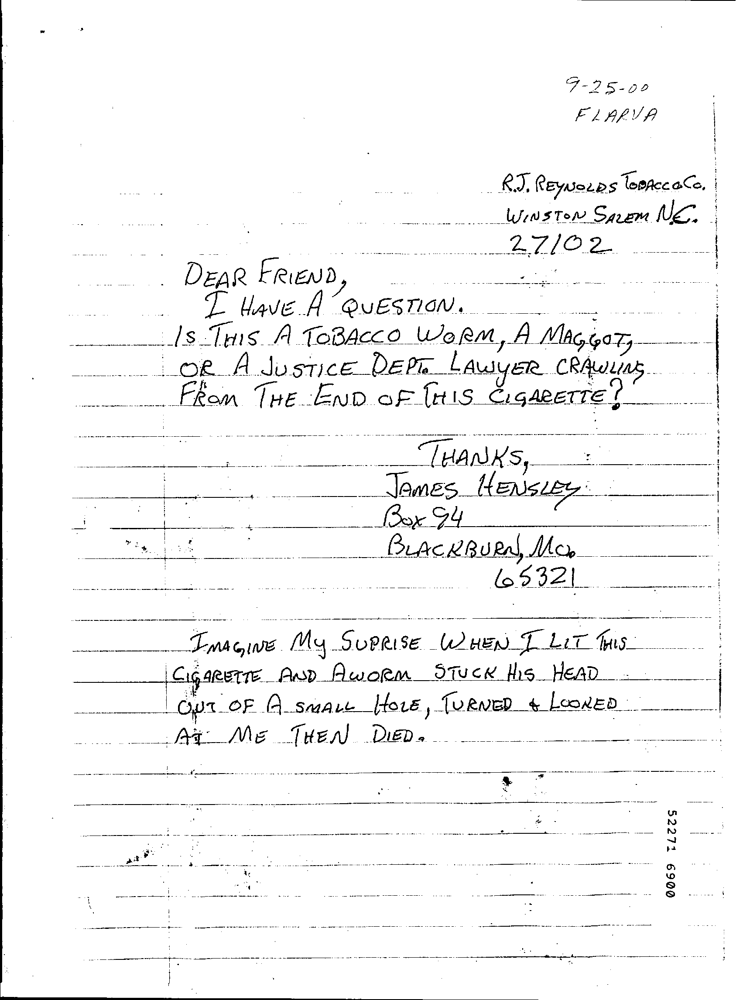 9-25-00
FLARVA
R.J. REYNOLDS TOBACCO Co.
WINSTON SALEM N.C.
27102
DEAR FRIEND,
I HAVE A QUESTION.
IS THIS A TOBACCO WORM, A MAGGOT,
OR A JUSTICE DEPT. LAWYER CRAWLING
FROM THE END OF THIS CIGARETTE?
THANKS,
JAMES HENSLEY
Box 94
BLACKBURN, Mo.
65321
IMAGINE My SUPRISE WHEN I LIT THIS
CIGARETTE AND AWORM STUCK HIS HEAD
OUT OF A SMALL HOLE, TURNED & LOOKED
AT ME THEN DIED.
52271 6900